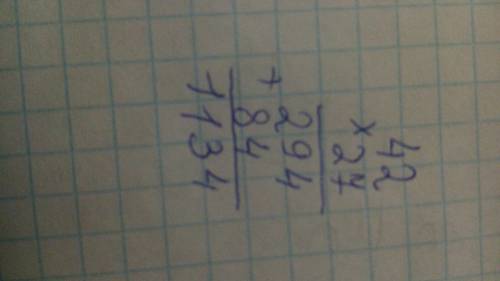 42
× 27
294
+ 84
1134